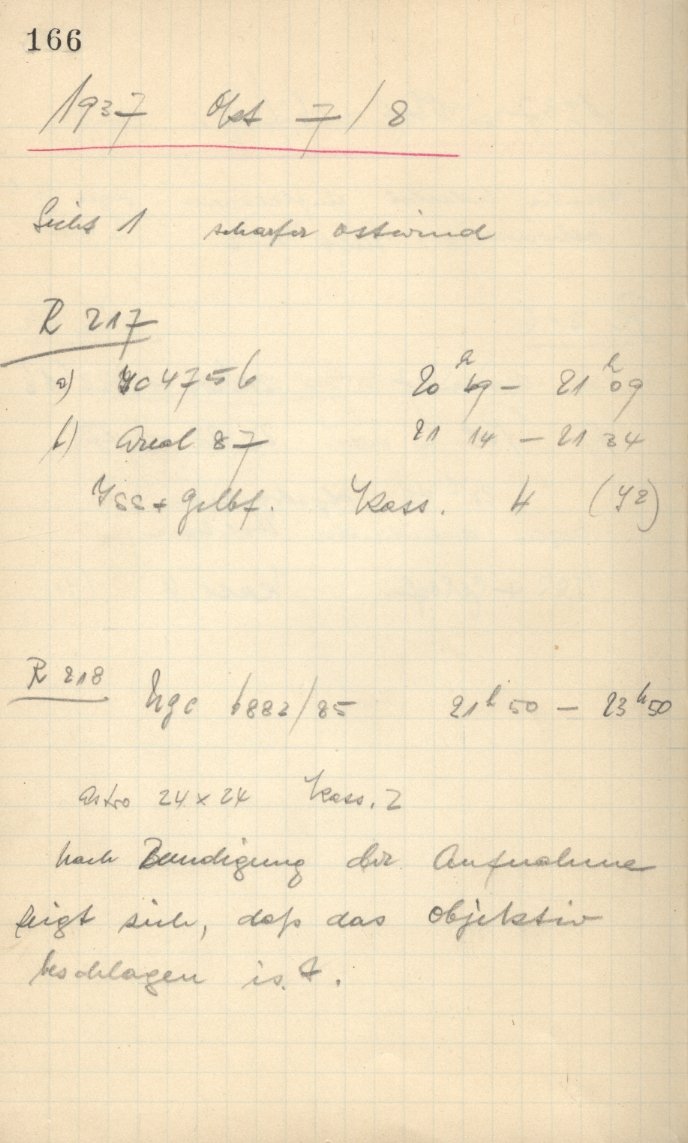 166
1937 Okt 7/8
Sicht 1 scharfer Ostwind
R 217
a) JC 4756 20 h 49 – 21 h 09
b) Areal 87 21 14 – 21 34
gelbf. Kass. 4
R 218 Ngc 6882/85 21 h 50 – 23 h 50
Astro 24 x 24 Kass. 2
nach Beendigung der Aufnahme
zeigt sich, daß das Objektiv
beschlagen ist.